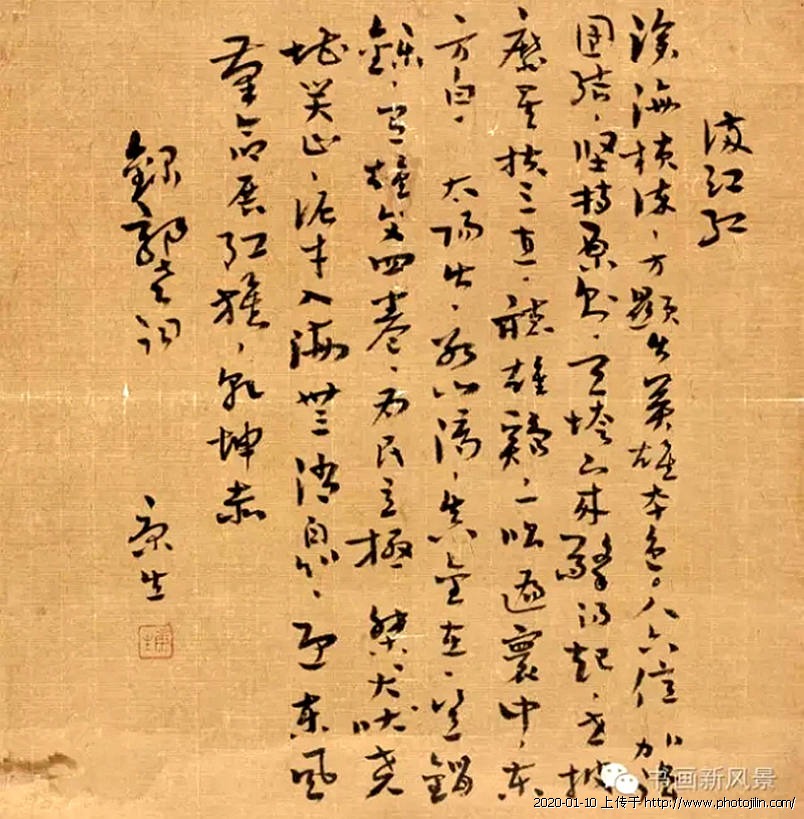 满江红
滄海横流、方顯出英雄本色。人六億 加强
团结、坚持原则、天垮下来擎得起、世披
靡矣扶之直、聽雄鷄、一唱遍寰中、东
方白、太陽出、冰山滴、真金在、岂銷
鑠、有雄文四卷、为民立極 桀犬吠尧
堪笑止、泥牛入海無消息、迎东風
革命展红旗、乾坤赤
録郭老词 康生
书画新风景
2020-01-10 上传于 http://www.photojlin.com/